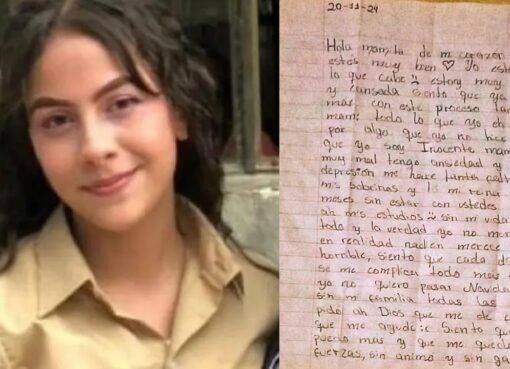 20-11-24
Hola mamita de mi corazon
estés muy bien ♡ Yo este
lo que cabe estoy muy
y cansada siento que ya
mas con este proceso tan
mami todo lo que yo eh
por algo que yo no hice
que yo soy Inocente mam
muy mal tengo ansiedad y
depresión me hace tanta falta
mis sobrinas y
meses sin estar con ustedes
ah mis estudios sin mi vida
todo y la verdad yo no mer
en realidad nadien merece
horrible, siento que cada d
se me complica todo mas
yo no quiero pasar Navida
sin mi familia todas las
pido ah Dios que me de
que me ayude Siento que
puedo mas y que me quede
fuerzas, sin animo y sin ga